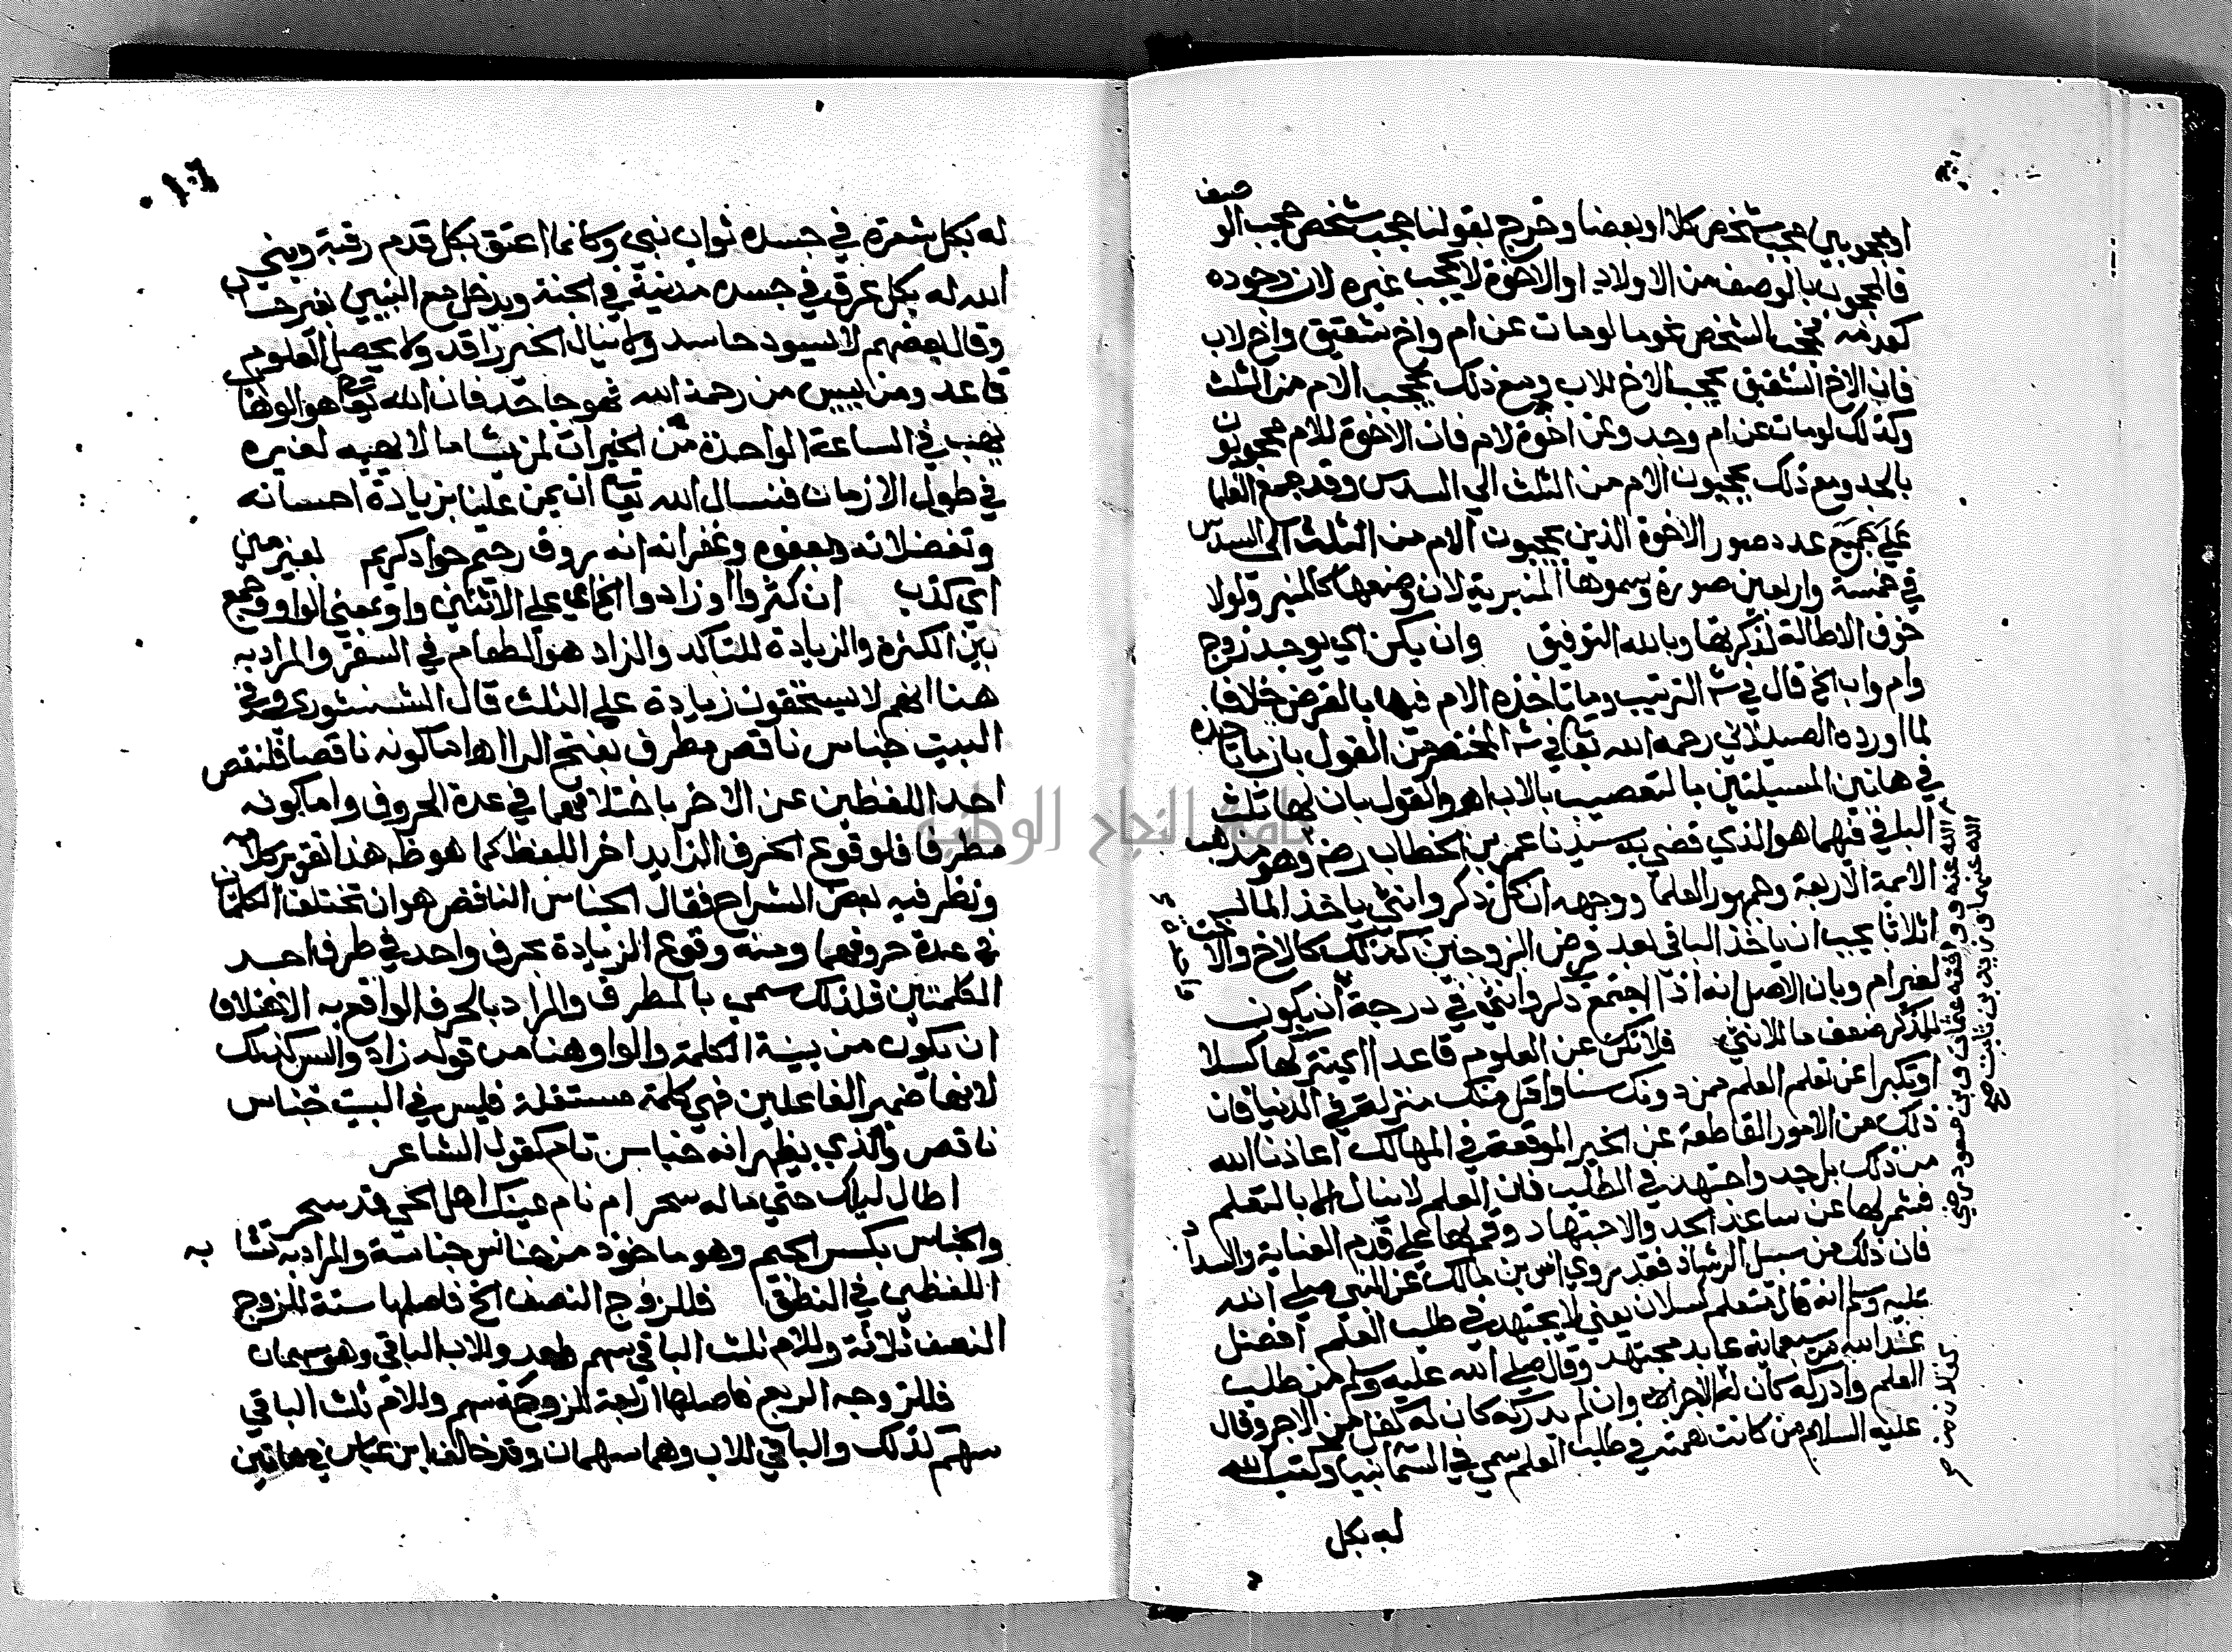 او محجوبين حجب شخص كلا او بعضا وخرج بقولنا حجب شخص حجب الوصف
فالمحجوب بالوصف من الاولاد او الاخوة لا يحجب غيره لان وجوده
كعدمه بالشخص نحو ما لو مات عن ام واخ شقيق واخ لاب
فان الاخ الشقيق يحجب الاخ للاب ومع ذلك يحجب الام من الثلث
وكذلك لو مات عن ام وجد وعن اخوة لام فان الاخوة للام محجوبون
بالجد ومع ذلك يحجبون الام من الثلث الي السدس وقد جمع العلما
علي جميع عدد صور الاخوة الذين يحجبون الام من الثلث الى السدس
في خمسة واربعين صورة وسموها المنبرية لان وضعها كالمنبر ولولا
خوف الاطالة لذكرتها وبالله التوفيق وان يكن اي يوجد زوج
وام واب الخ قال في شـ الترتيب وما تاخذه الام فيها بالفرض خلافا
لما اورده رحمه الله تعا في شـ المختصر من القول بان ما تاخذه
في هاتين المسيلتين بالتعصيب بالاب والقول بان لها ثلث
الباقي فيهما هو الذي قضى به سيدنا عمر بن الخطاب رضه وهو مذهب
الائمة الاربعة وجمهور العلما ووجهه ان كل ذكر وانثي ياخذ المال
اثلاثا يجب ان ياخذ الباقي بعد فرض الزوجين كذلك كالاخ والاخت
لغير ام وبان الاصل انه اذا اجتمع ذكر وانثي في درجة ان يكون
للذكر ضعف ما للانثي فلا تكن عن العلوم قاعدا اي تتركها كسلا
او تكبرا عن تعلم العلم ممن دونك سنا واقل منك منزلة في الدنيا فان
ذلك من الامور القاطعة عن الخير الموقعة في المهالك اعاذنا الله
من ذلك بل جد واجتهد في الطلب فان العلم لا ينال الا بالتعلم
فشمر لها عن ساعد الجد والاجتهاد وقم لها علي قدم العناية والسداد
فان ذلك من سبيل الرشاد فقد روي انس بن مالك عن النبي صلي الله
عليه وسلم انه قال متعلم كسلان يعني لا يجتهد في طلب العلم افضل
عند الله من سبعماية عابد مجتهد وقال صلي الله عليه وسلم من طلب
العلم وادركه كان له وان لم يدركه كان له كفل من الاجر وقال
عليه السلام من كانت همته في طلب العلم سمي في السما نبيا وكتب الله
له بكل
الله عنه ووافقه عثمان وبن مسعود رضي
الله عنهما وزيد بن ثابت صح
له بكل شعرة في جسده ثواب نبي وكانما اعتق بكل قدم رقبة ويبني
الله له بكل عرق في جسده مدينة في الجنة ويدخل مع النبيين بغير حساب
وقال بعضهم لا يسود حاسد ولا ينال الخير راقد ولا يحصل العلوم
قاعد ومن ييس من رحمة الله فهو جاحد فان الله تعا هو الوهاب
يهب في الساعة الواحدة من الخيرات لمن يشا ما لا يهبه لغيره
في طول الازمان فنسال الله تعا ان يمن علينا بزيادة احسانه
وتفضلاته وبعفوه وغفرانه انه روف رحيم جواد كريم بغير مين
اي كذب ان كثروا او زادوا اي علي الاثنين واو بمعني الواو وجمع
بين الكثرة والزيادة للتاكد والزاد هو الطعام في السفر والمراد به
هنا انهم لا يستحقون زيادة علي الثلث قال الشنشوري وفي
البيت جناس ناقص مطرف بفتح الرا اما كونه ناقصا فلنقص
احد اللفظين عن الاخر باختلافهما في عدة الحروف واما كونه
مطرفا فلوقوع الحرف الزايد اخر اللفظ كما هو ظ هذا تقرير كلامه
ونظر فيه بعض الشراح فقال الجناس الناقص هو ان تختلف الكلمتان
في عدة حروفهما ومنه وقوع الزيادة بحرف واحد في طرف احد
الكلمتين فلذلك سمي بالمطرف والمراد بالحرف الواقع به الاختلاف
ان يكون من بنية الكلمة والواو هنا من قوله زادوا ليس كذلك
لانها ضمير الفاعلين فهي كلمة مستقلة فليس في البيت جناس
ناقص والذي يظهر انه جناس تام كقول الشاعر
اطال ليلك حتي ماله سحر ام نام عينك اهل الحي قد سحر
والجناس بكسر الجيم وهو ماخوذ من جناس جناسة والمراد به تشابه
اللفظين في النطق فللزوج النصف الخ فاصلها ستة للزوج
النصف ثلاثة وللام ثلث الباقي سهم واحد وللاب الباقي وهو سهمان
فللزوجه الربع فاصلها اربعة للزوجة سهم وللام ثلث الباقي
سهم كذلك والباقي للاب وهما سهمان وقد خالف ابن عباس في هاتين
جامعة النجاح الوطنية